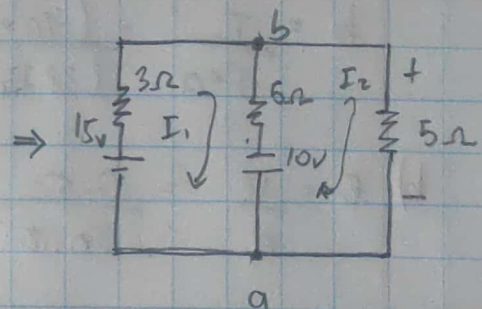 b
3Ω 6Ω I₂ +
⇒ 15v I₁ 10v 5Ω
-
a